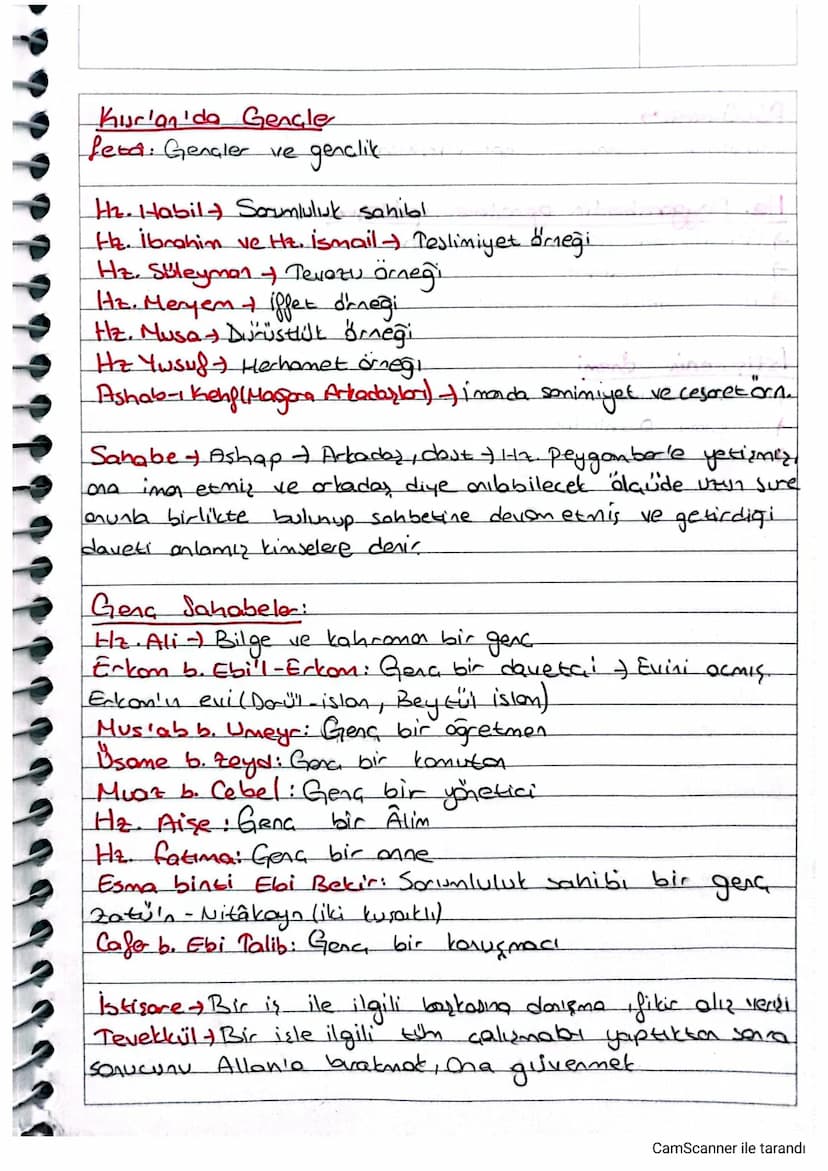 Kur'an'da Gençler
feta: Gençler ve gençlik
Hz. Habil → Sorumluluk sahibi
Hz. İbrahim ve Hz. İsmail → Teslimiyet örneği
Hz. Süleyman → Tevazu örneği
Hz. Meryem → iffet örneği
Hz. Musa → Dürüstlük örneği
Hz Yusuf → Merhamet örneği
Ashab-ı Kehf (Mağara Arkadaşları) → imanda samimiyet ve cesaret örn.
Sahabe → Ashap → Arkadaş, dost → Hz. Peygamber'le yetişmiş,
ona iman etmiş ve arkadaş diye anılabilecek ölçüde uzun süre
onunla birlikte bulunup sohbetine devam etmiş ve getirdiği
daveti anlamış kimselere denir.
Genç Sahabeler:
Hz. Ali → Bilge ve kahraman bir genç
Erkam b. Ebi'l-Erkam: Genç bir davetçi → Evini açmış.
Erkam'ın evi (Darü'l-islam, Beytül islam)
Mus'ab b. Umeyr: Genç bir öğretmen
Üsame b. Zeyd: Genç bir komutan
Muaz b. Cebel: Genç bir yönetici
Hz. Aişe: Genç bir Âlim
Hz. Fatıma: Genç bir anne
Esma binti Ebi Bekir: Sorumluluk sahibi bir genç
Zatü'n-Nitâkayn (iki kuşaklı)
Cafer b. Ebi Talib: Genç bir konuşmacı
İstişare → Bir iş ile ilgili başkasına danışma, fikir alış verişi
Tevekkül → Bir işle ilgili tüm çalışmaları yaptıktan sonra
sonucunu Allah'a bırakmak, Ona güvenmek
CamScanner ile tarandı